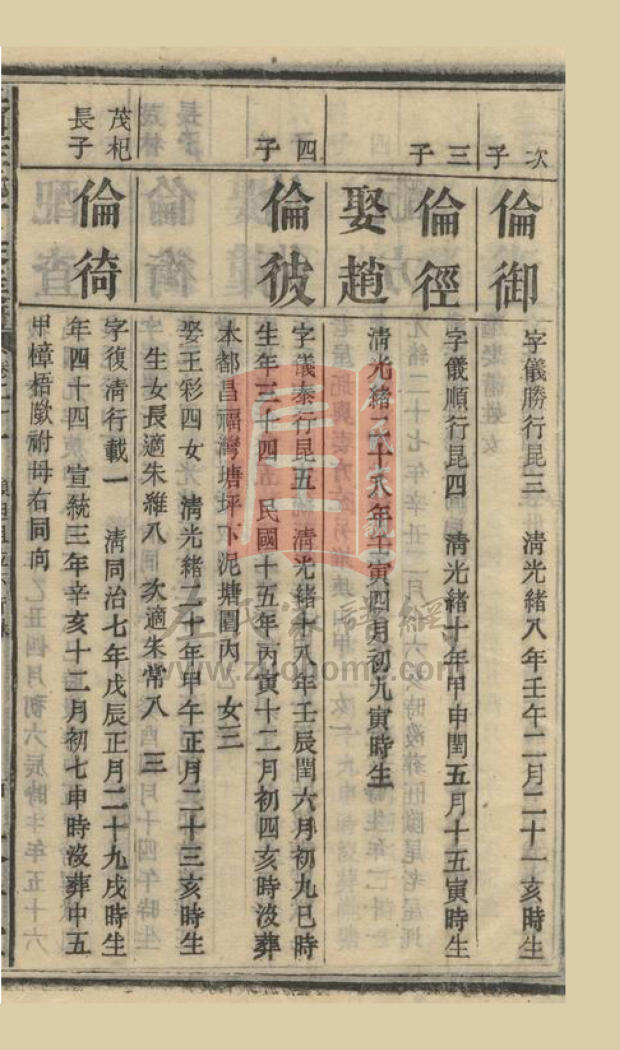 次子
倫御
字儀勝行昆三　清光緒八年壬午二月二十一亥時生
三子
倫徑
字儀順行昆四　清光緒十年甲申閏五月十五寅時生
娶趙
清光緒二十八年壬寅四月初九寅時生
四子
倫彼
字儀泰行昆五　清光緒十八年壬辰閏六月初九巳時
生年三十四五　民國十五年丙寅十二月初四亥時沒葬
本都昌福灣塘坪下泥塘圍內　女三
娶王彩四女　清光緒二十年甲午正月二十三亥時生
生女長適朱雜八　次適朱常八　三
茂杞長子
倫徛
字復清行載一　清同治七年戊辰正月二十九戌時生
年四十四　宣統三年辛亥十二月初七申時沒葬中五
甲樟梧歐祔母右同向
左氏家譜網
www.zuohome.com